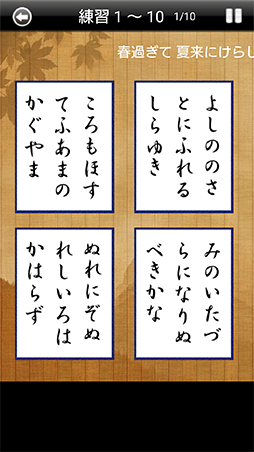 練習1～10 1/10
春過ぎて 夏来にけらし
よしののさ
とにふれる
しらゆき
ころもほす
てふあまの
かぐやま
みのいたづ
らになりぬ
べきかな
ぬれにぞぬ
れしいろは
かはらず